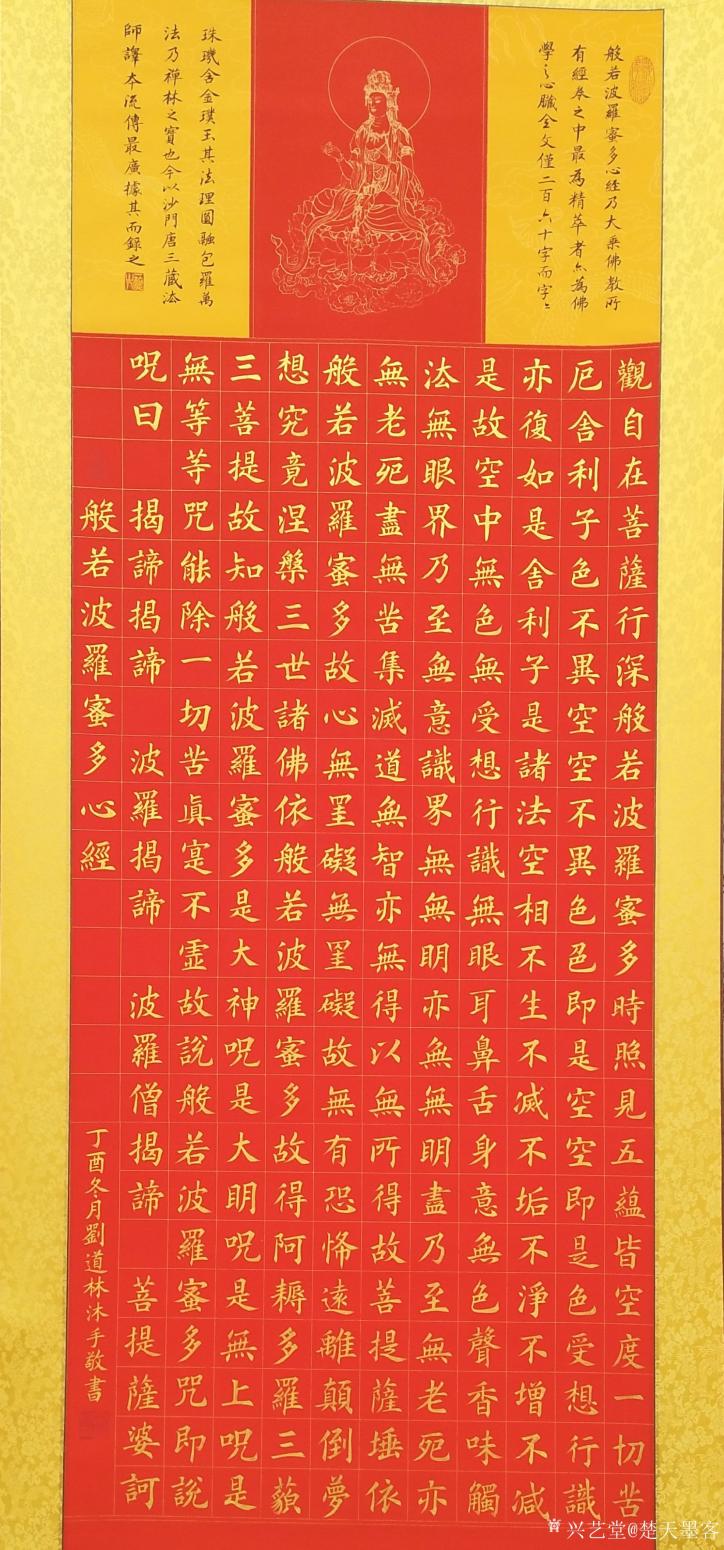 般若波羅蜜多心經乃大乘佛教所
有經卷之中最為精萃者亦為佛
學之心臟全文僅二百六十字而字々
珠璣含金璞玉其法理圓融包羅萬
法乃禪林之寶也今以沙門唐三藏法
師譯本流傳最廣據其而錄之
觀自在菩薩行深般若波羅蜜多時照見五蘊皆空度一切苦
厄舍利子色不異空空不異色色即是空空即是色受想行識
亦復如是舍利子是諸法空相不生不滅不垢不淨不增不減
是故空中無色無受想行識無眼耳鼻舌身意無色聲香味觸
法無眼界乃至無意識界無無明亦無無明盡乃至無老死亦
無老死盡無苦集滅道無智亦無得以無所得故菩提薩埵依
般若波羅蜜多故心無罣礙無罣礙故無有恐怖遠離顛倒夢
想究竟涅槃三世諸佛依般若波羅蜜多故得阿耨多羅三藐
三菩提故知般若波羅蜜多是大神呪是大明呪是無上呪是
無等等咒能除一切苦真寔不虛故說般若波羅蜜多咒即說
呪曰 揭諦揭諦 波羅揭諦 波羅僧揭諦 菩提薩婆訶
般若波羅蜜多心經
丁酉冬月劉道林沐手敬書
兴艺堂@楚天墨客